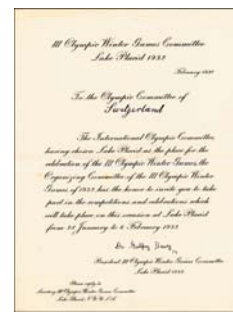 III Olympic Winter Games Committee
Lake Placid 1932
February 1930
To the Olympic Committee of
Switzerland
The International Olympic Committee,
having chosen Lake Placid as the place for the
celebration of the III Olympic Winter Games, the
Organizing Committee of the III Olympic Winter
Games of 1932 has the honor to invite you to take
part in the competitions and celebrations which
will take place on this occasion at Lake Placid
from January to February 1932
President III Olympic Winter Games Committee
Lake Placid 1932
Please reply to
Secretary III Olympic Winter Games Committee
Lake Placid, N.Y. U.S.A.